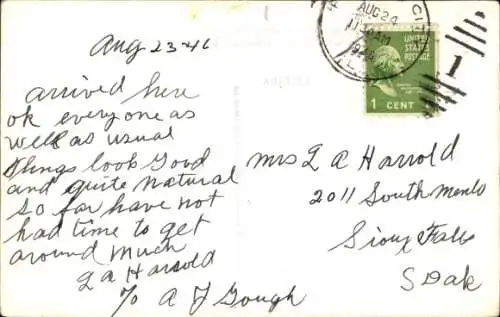 Aug 23-46
arrived here
ok everyone as
well as usual
things look good
and quite natural
so far have not
had time to get
around much
L A Harrold
℅ A J Gough
AUG 24
UNITED
STATES
POSTAGE
1 CENT
1
Mrs L A Harrold
2011 South Menlo
Sioux Falls
S Dak